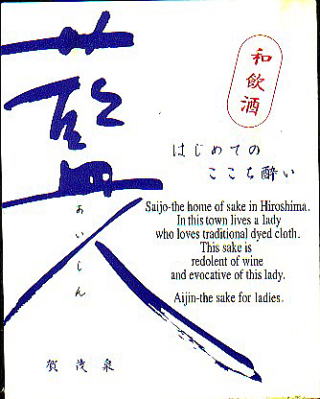 藍人
あいじん
和飲酒
はじめての
ここち酔い
Saijo-the home of sake in Hiroshima.
In this town lives a lady
who loves traditional dyed cloth.
This sake is
redolent of wine
and evocative of this lady.
Aijin-the sake for ladies.
賀茂泉